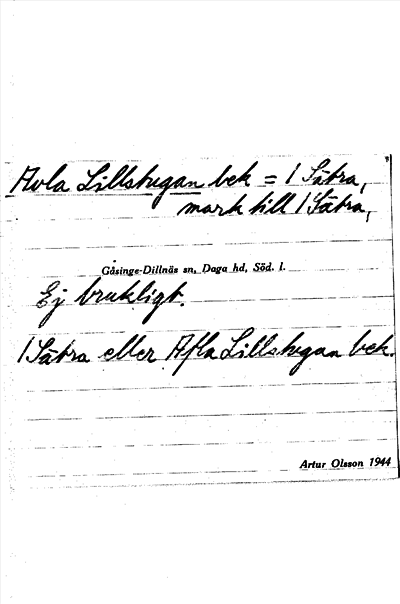 Avla Lillstugan bek = 1 Sätra,
mark till 1 Sätra,
Gåsinge-Dillnäs sn, Daga hd, Söd. l.
Ej brukligt.
1 Sätra eller Afla Lillstugan bek.
Artur Olsson 1944